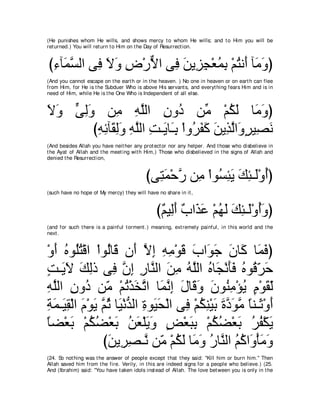 (He punishes whom He wills, and shows mercy to whom He wills; and to Him you will be
returned.) You will return to Him on the Day of Resurrection.
(وَمَآ أَنتُمْ بِمُعْجِزِينَ فِى الاٌّرْضِ وَلاَ فِى السَّمَآءِ)
(And you cannot escape on the earth or in the heaven. ) No one in heaven or on earth can flee
from Him, for He is the Subduer Who is above His servants, and everything fears Him and is in
need of Him, while He is the One Who is Independent of all else.
(وَمَا لَكُمْ مِّن دُونِ اللَّهِ مِن وَلِىٍّ وَلاَ
نَصِيرٍوَالَّذِينَ كَفَرُواْ بِـَايَـتِ اللَّهِ وَلِقَآئِهِ)
(And besides Allah you have neither any protector nor any helper. And those who disbelieve in
the Ayat of Allah and the meeting with Him,) Those who disbelieved in the signs of Allah and
denied the Resurrection,
(أُوْلَـئِكَ يَئِسُواْ مِن رَّحْمَتِى)
(such have no hope of My mercy) they will have no share in it,
(وَأُوْلَـئِكَ لَهُمْ عَذَابٌ أَلِيمٌ)
(and for such there is a painful torment.) meaning, extremely painful, in this world and the
next.
(فَمَا كَانَ جَوَابَ قَوْمِهِ إِلاَّ أَن قَالُواْ اقْتُلُوهُ أَوْ
حَرِّقُوهُ فَأَنْجَاهُ اللَّهُ مِنَ النَّارِ إِنَّ فِى ذلِكَ لأَيَـتٍ
لِّقَوْمٍ يُؤْمِنُونَ وَقَالَ إِنَّمَا اتَّخَذْتُمْ مِّن دُونِ اللَّهِ
أَوْثَـناً مَّوَدَّةَ بَيْنِكُمْ فِى الْحَيَوةِ الدُّنْيَا ثُمَّ يَوْمَ الْقِيَـمَةِ
يَكْفُرُ بَعْضُكُمْ بِبَعْضٍ وَيَلْعَنُ بَعْضُكُمْ بَعْضاً
وَمَأْوَاكُمُ النَّارُ وَمَا لَكُمْ مِّن نَّـصِرِينَ)
(24. So nothing was the answer of people except that they said: "Kill him or burn him." Then
Allah saved him from the fire. Verily, in this are indeed signs for a people who believe.) (25.
And (Ibrahim) said: "You have taken idols instead of Allah. The love between you is only in the